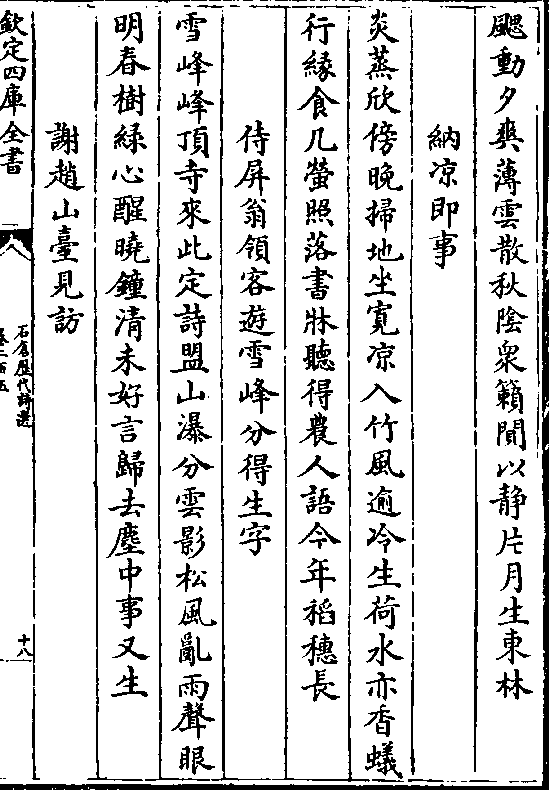 颸動夕爽薄雲散秋陰衆籟閒以静片月生東林
納凉即事
炎蒸欣傍晚掃地坐寛凉入竹風逾冷生荷水亦香蟻
行緣食几螢照落書牀聽得農人語今年稻穗長
侍屏翁領客遊雪峰分得生字
雪峰峰頂寺來此定詩盟山瀑分雲影松風亂雨聲眼
明春樹綠心醒曉鐘清未好言歸去塵中事又生
謝趙山臺見訪
欽定四庫全書
石倉歴代詩選
卷二百五
十八